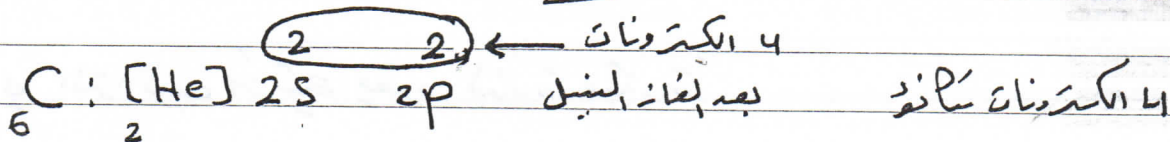 2 2 ← ٤ الكترونات
₆C : [He]₂ 2S 2p بعد الغاز النبيل الكترونات تكافؤ